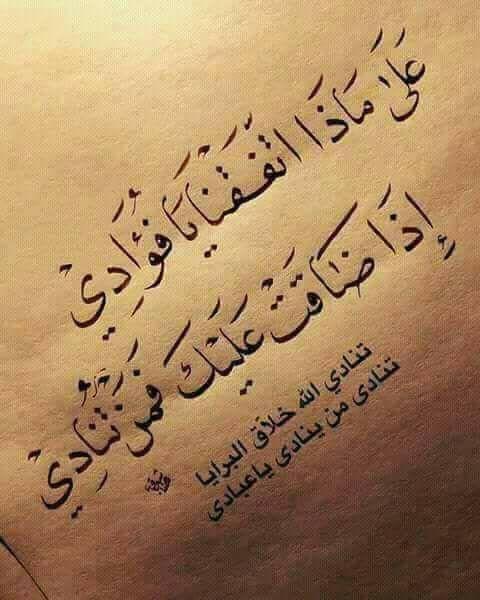 عَلَىٰ مَاذَا اتَّفَقْنَا يَا فُؤَادِي
إِذَا ضَاقَتْ عَلَيْكَ فَمَنْ تُنَادِي
تنادي الله خلاّق البرايا
تنادى من ينادى ياعبادى